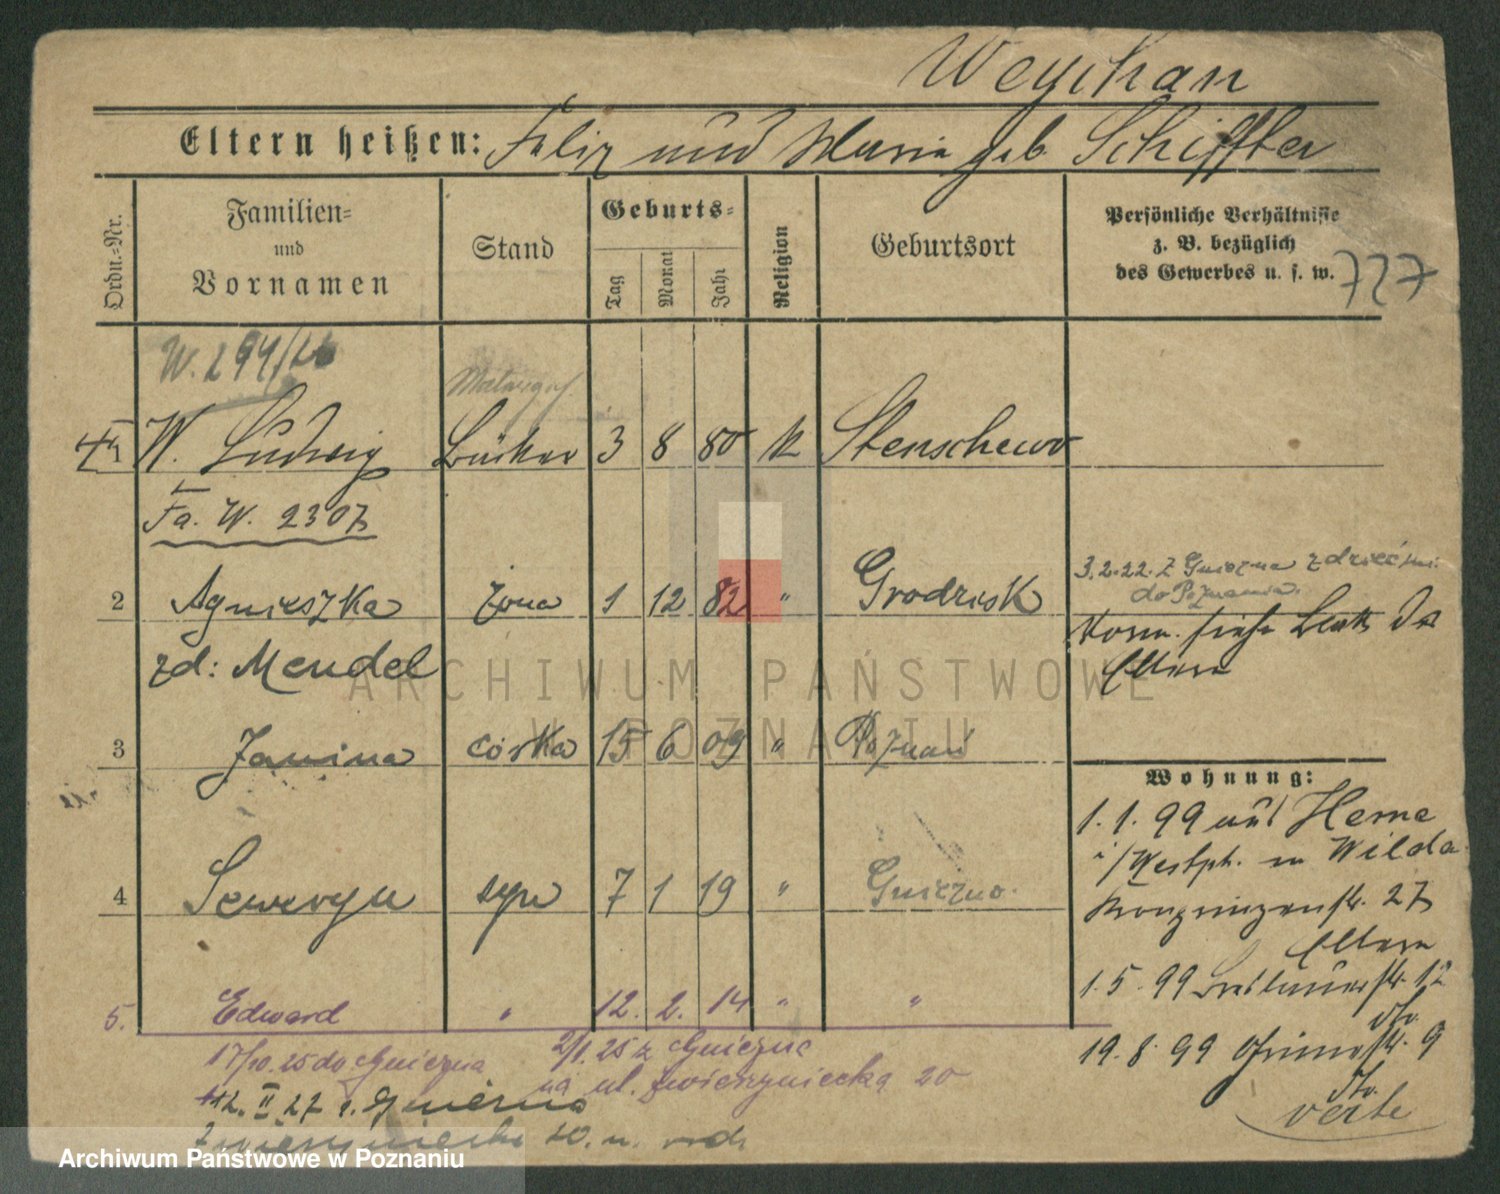 Weychan
Eltern heißen: Felix und Maria geb. Schiffter
Ordn.=Nr.
Familien=
und
Vornamen
Stand
Geburts=
Tag
Monat
Jahr
Religion
Geburtsort
Persönliche Verhältnisse
z. B. bezüglich
des Gewerbes u. s. w.
727
W. 294/22
1 W. Ludwig 3 8 80 k Stenschewo
Fa. W. 2307
3.2.22. z Gniezna z dziećmi
do Poznania.
2 Agnieszka żona 1 12 82 " Grodzisk
Vorm. siehe Blatt der
Eltern
zd: Mendel
3 Janina córka 15 6 09 " Poznań
Wohnung:
1.1.99 aus Herne
i/Westph. in Wilda
Kronprinzenstr. 27
Eltern
4 Seweryn syn 7 1 19 " Gniezno.
1.5.99 Breslauerstr. 12
dto.
5. Edward " 12. 2. 14 " "
19.8.99 9
dto.
verte
17/10.25 do Gniezna
2/1.25 z Gniezna
na ul. Zwierzyniecką 20
12. II 27 z. Gniezna
Zwierzyniecka 20.
ARCHIWUM PAŃSTWOWE
W POZNANIU
Archiwum Państwowe w Poznaniu